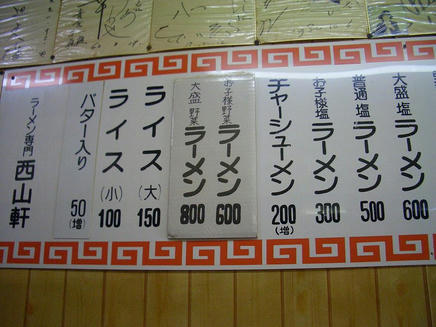 大盛 塩ラーメン 600
普通 塩ラーメン 500
お子様塩ラーメン 300
チャーシューメン 200(増)
お子様野菜ラーメン 600
大盛 野菜ラーメン 800
ライス(大) 150
ライス(小) 100
バター入り 50(増)
ラーメン専門 西山軒